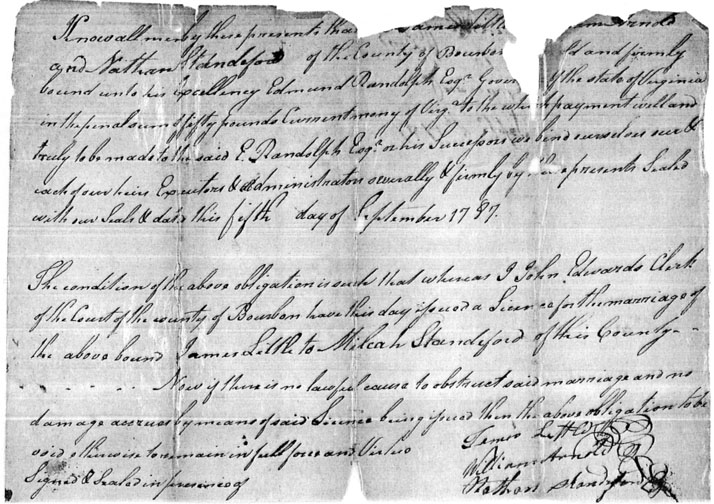 Know all men by these presents that James Little Arnold
and Nathan Standeford of the County of Bourbon and firmly
bound unto his Excellency Edmund Randolph Esqr. Gover of the state of Virginia
in the penal sum of fifty pounds Current money of Virga. to the which payment well and
truly to be made to the said E. Randolph Esqr. or his Successors we bind ourselves our &
each of our heirs Executors & Administrators severally & firmly by these presents Sealed
with our Seals & dated this fifth day of September 1787.
The condition of the above obligation is such that whereas I John Edwards Clerk
of the Court of the county of Bourbon have this day issued a Licence for the marriage of
the above bound James Little to Milcah Standeford of this County
Now if there is no lawful cause to obstruct said marriage and no
damage accrues by means of said Licence being issued then the above obligation to be
void otherwise to remain in full force and Virtue
James Little
William Arnold
Signed & Sealed in presence of
Nathan Standeford